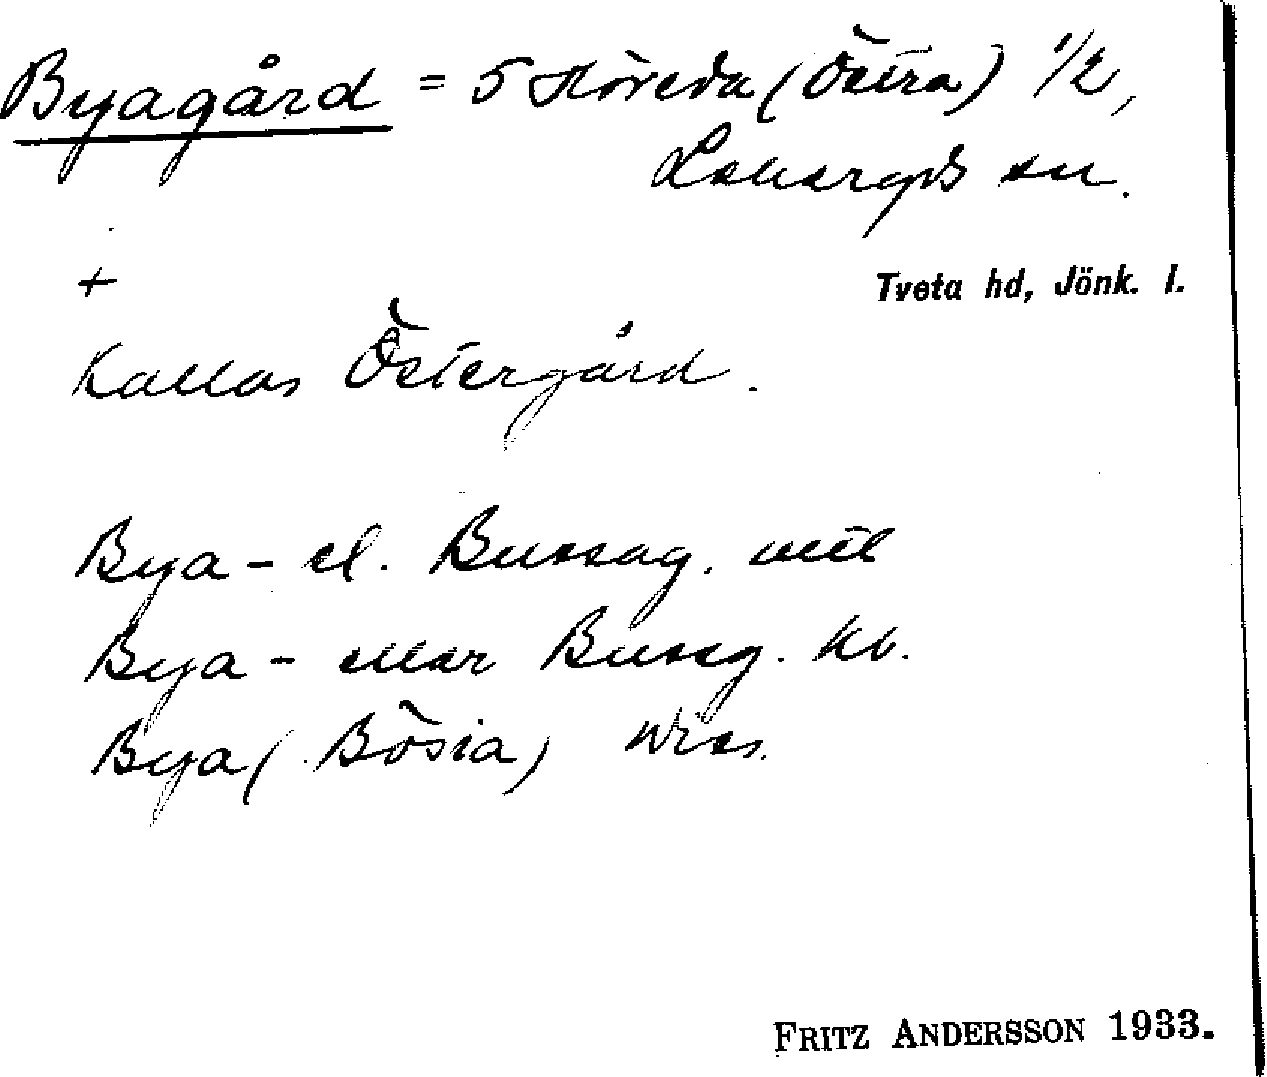 Byagård = 5 Höreda (Östra) 1/2,
Lekeryds sn.
+
Tveta hd, Jönk. l.
Kallas Östergård.
Bya- el. Bussag.
Bya- eller Bussg. kb.
Bya (Bösia)
FRITZ ANDERSSON 1933.